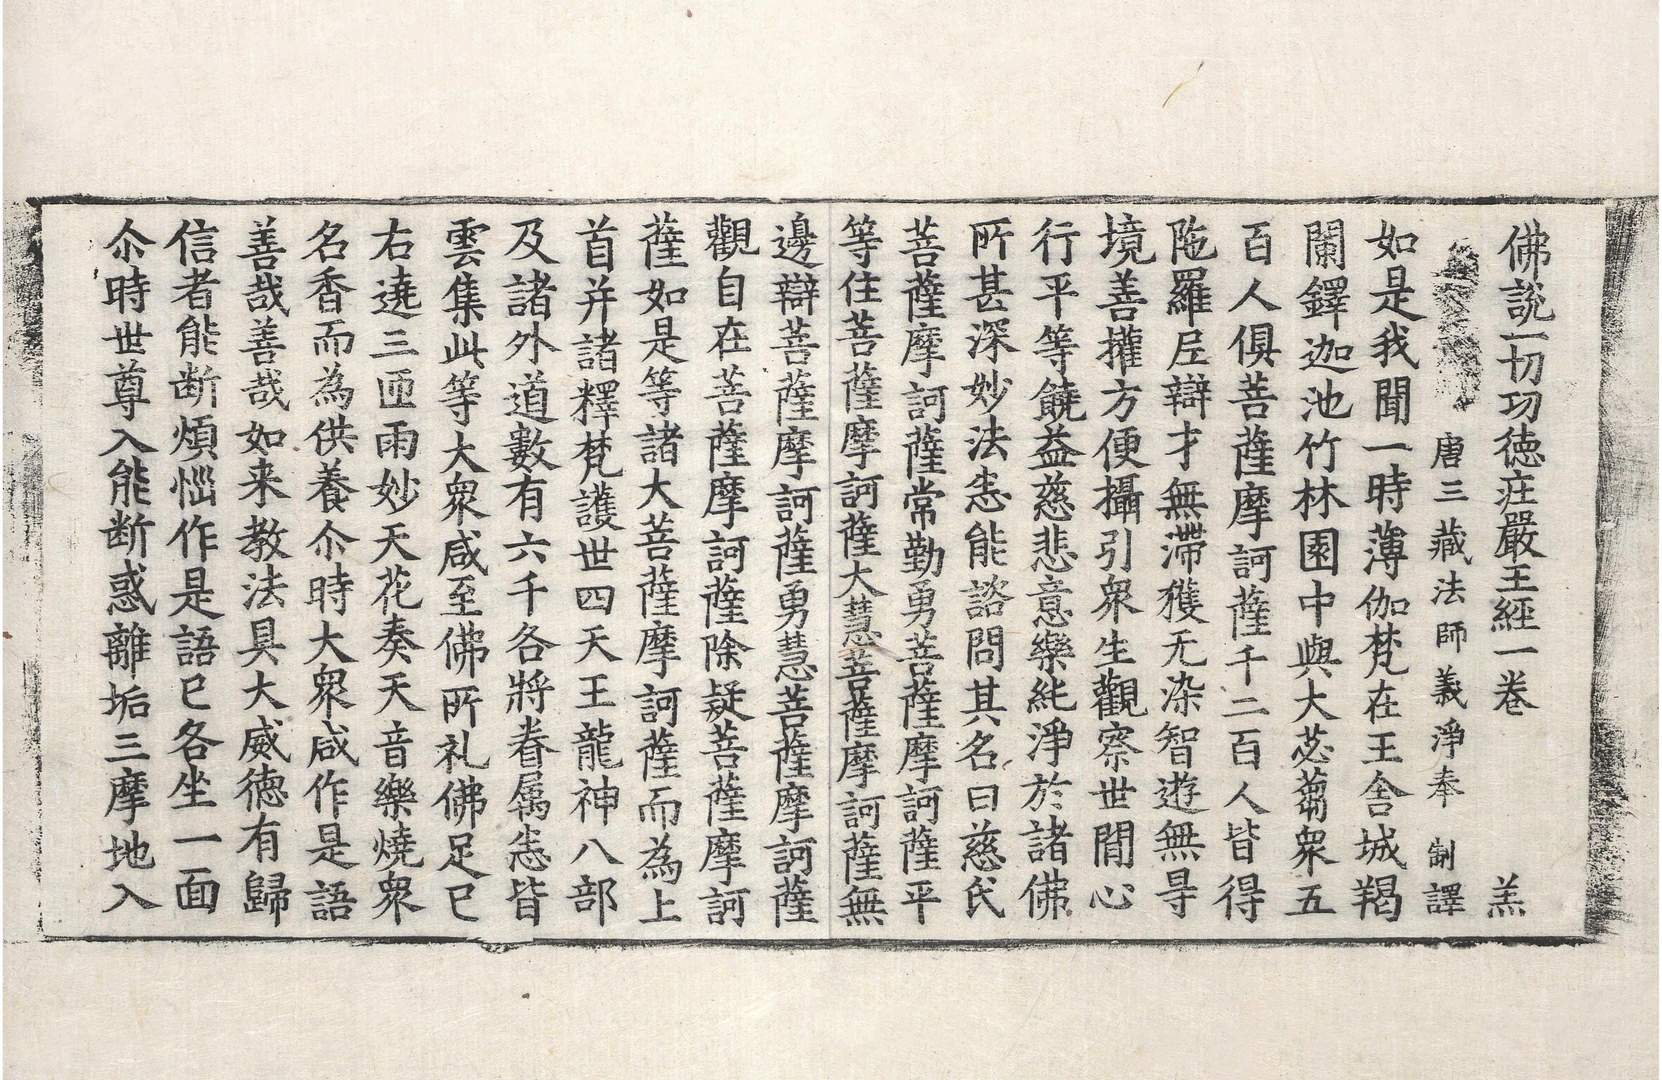 佛說一切功德莊嚴王經一卷 羔
唐三藏法師義淨奉 制譯
如是我聞一時薄伽梵在王舍城羯
闌鐸迦池竹林園中與大苾蒭衆五
百人俱菩薩摩訶薩千二百人皆得
陁羅尼辯才無滯獲无染智遊無㝵
境善權方便攝引衆生觀察世閒心
行平等饒益慈悲意樂純淨於諸佛
所甚深妙法悉能諮問其名曰慈氏
菩薩摩訶薩常勤勇菩薩摩訶薩平
等住菩薩摩訶薩大慧菩薩摩訶薩無
邊辯菩薩摩訶薩勇慧菩薩摩訶薩
觀自在菩薩摩訶薩除疑菩薩摩訶
薩如是等諸大菩薩摩訶薩而為上
首并諸釋梵護世四天王龍神八部
及諸外道數有六千各將眷属悉皆
雲集此等大衆咸至佛所礼佛足已
右遶三匝雨妙天花奏天音樂燒衆
名香而為供養尒時大衆咸作是語
善哉善哉如来教法具大威德有歸
信者能断煩惱作是語已各坐一面
尒時世尊入能断惑離垢三摩地入